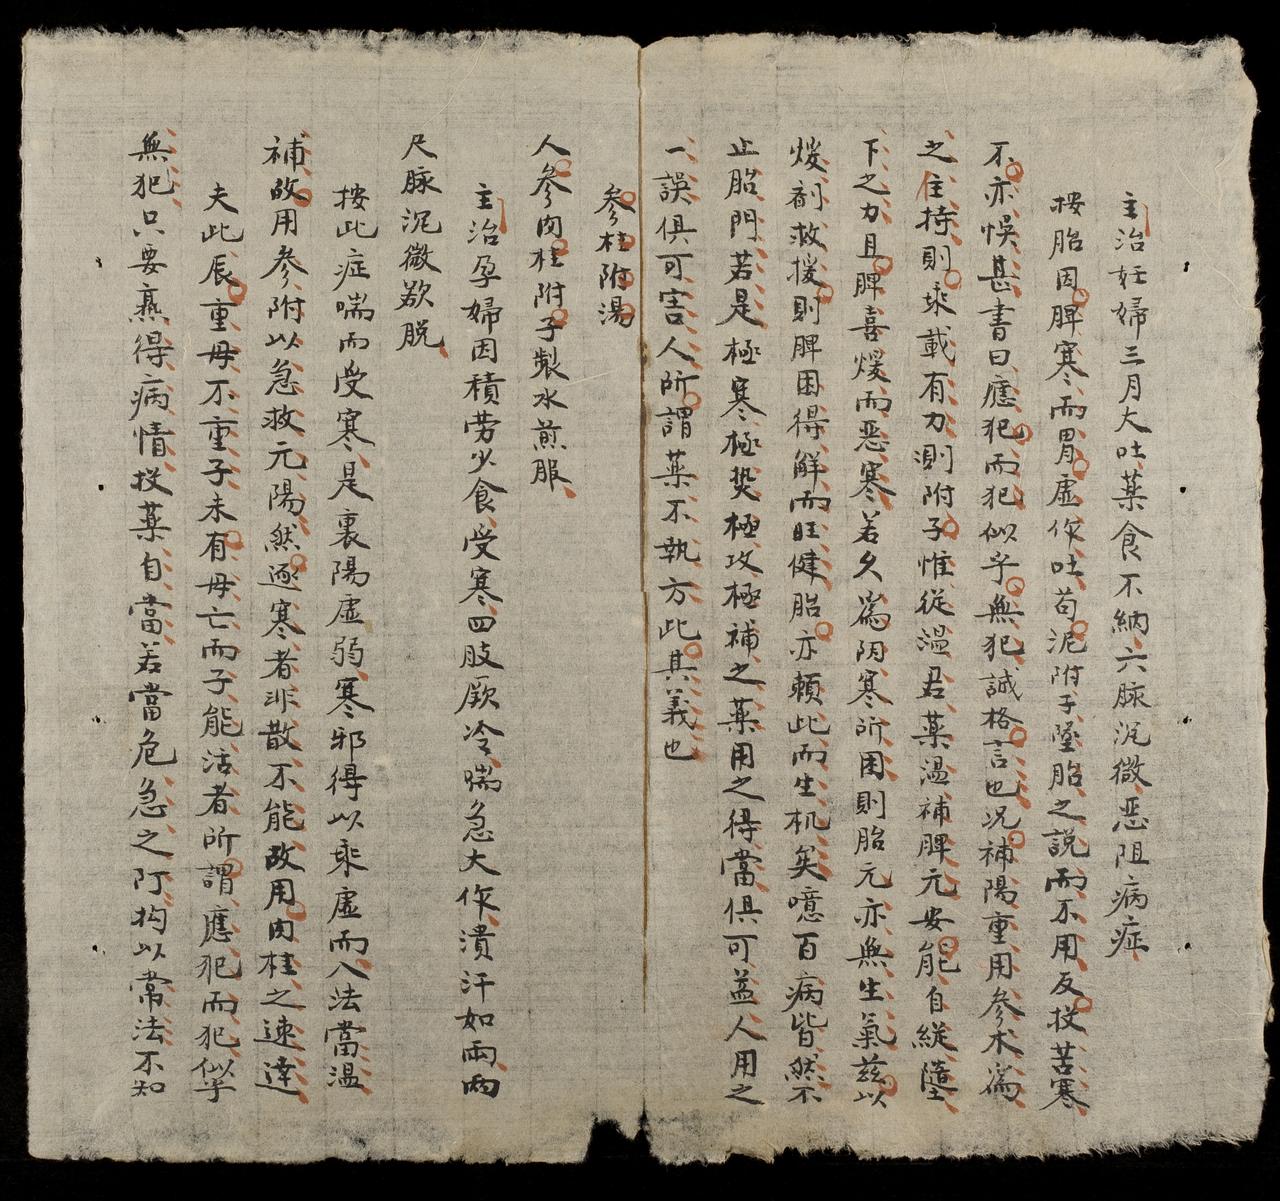 主治妊婦三月大吐藥食不納六脉沉微惡阻病症
按胎因脾寒而胃虛作吐苟泥附子墜胎之說而不用反投苦寒
不亦悞甚書曰應犯而犯似乎無犯誠格言也况補陽重用參朮為
之住持則乘載有力測附子惟從溫君藥溫補脾元安能自縱隨
下之力且脾喜煖而惡寒若久為阴寒所困則胎元亦無生氣玆以
煖劑救援則脾困得觧而旺健胎亦頼此而生机矣噫百病皆然不
止胎門若是極寒極𤍠極攻極補之藥用之得當俱可益人用之
一誤俱可害人所謂藥不執方此其義也
參桂附湯
人參肉桂附子製水煎服
主治孕婦因積劳少食受寒四肢厥冷喘急大作潰汗如雨兩
尺脉沉微欲脱
按此症喘而受寒是裏陽虛弱寒邪得以乘虛而入法當溫
補故用參附以急救元陽然逐寒者非散不能故用肉桂之速達
夫此辰重母不重子未有母亡而子能活者所謂應犯而犯似乎
無犯只要熹得病情投藥自當若當危急之际构以常法不知